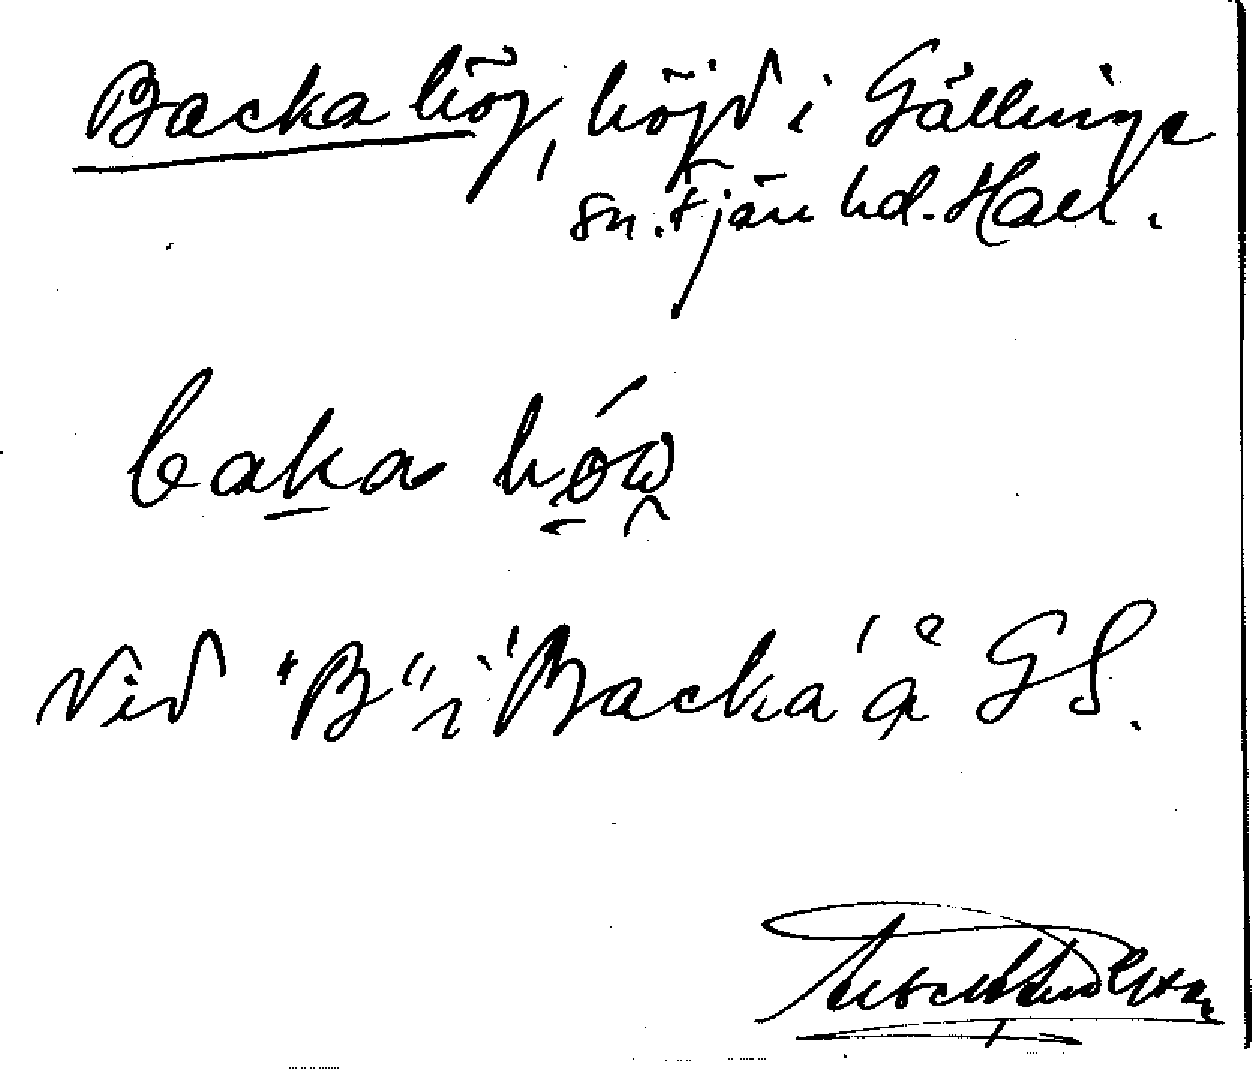 Backa hög, höjd i Gällinge
sn. Fjäre hd. Hall.
baka hów
Vid "B" i 'Backa' å GS.